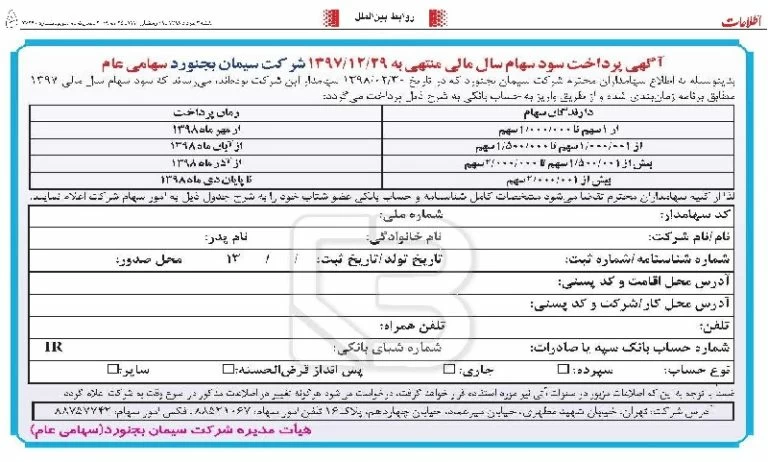 اطلاعات
روابط بین‌الملل
آگهی پرداخت سود سهام سال مالی منتهی به ۱۳۹۷/۱۲/۲۹ شرکت سیمان بجنورد سهامی عام
بدینوسیله به اطلاع سهامداران محترم شرکت سیمان بجنورد که در تاریخ ۱۳۹۸/۰۲/۳۰ سهامدار این شرکت بوده‌اند، می‌رساند که سود سهام سال مالی ۱۳۹۷
مطابق برنامه زمان‌بندی شده و از طریق واریز به حساب بانکی به شرح ذیل پرداخت می‌گردد:
دارندگان سهام زمان پرداخت
از ۱ سهم تا ۱/۰۰۰/۰۰۰ سهم از مهر ماه ۱۳۹۸
از ۱/۰۰۰/۰۰۱ سهم تا ۱/۵۰۰/۰۰۰ سهم از آبان ماه ۱۳۹۸
بیش از ۱/۵۰۰/۰۰۱ سهم تا ۲/۰۰۰/۰۰۰ سهم از آذر ماه ۱۳۹۸
بیش از ۲/۰۰۰/۰۰۱ سهم تا پایان دی ماه ۱۳۹۸
لذا از کلیه سهامداران محترم تقاضا می‌شود مشخصات کامل شناسنامه و حساب بانکی عضو شتاب خود را به شرح جدول ذیل به امور سهام شرکت اعلام نمایند.
کد سهامدار: شماره ملی:
نام/نام شرکت: نام خانوادگی: نام پدر:
شماره شناسنامه/شماره ثبت: تاریخ تولد/تاریخ ثبت: / / ۱۳ محل صدور:
آدرس محل اقامت و کد پستی:
آدرس محل کار/شرکت و کد پستی:
تلفن: تلفن همراه:
شماره حساب بانک سپه یا صادرات: شماره شبای بانکی: IR
نوع حساب: سپرده: جاری: پس انداز قرض‌الحسنه: سایر:
ضمنا با توجه به این که اطلاعات مزبور در سنوات آتی نیز مورد استفاده قرار خواهد گرفت، درخواست می‌شود هرگونه تغییر در اطلاعات مذکور در اسرع وقت به شرکت اعلام گردد
آدرس شرکت: تهران، خیابان شهید مطهری، خیابان میرعماد، خیابان چهاردهم، پلاک ۱۶ تلفن امور سهام: ۸۸۵۲۱۰۶۷، فکس امور سهام: ۸۸۷۵۷۷۴۲
هیأت مدیره شرکت سیمان بجنورد(سهامی عام)